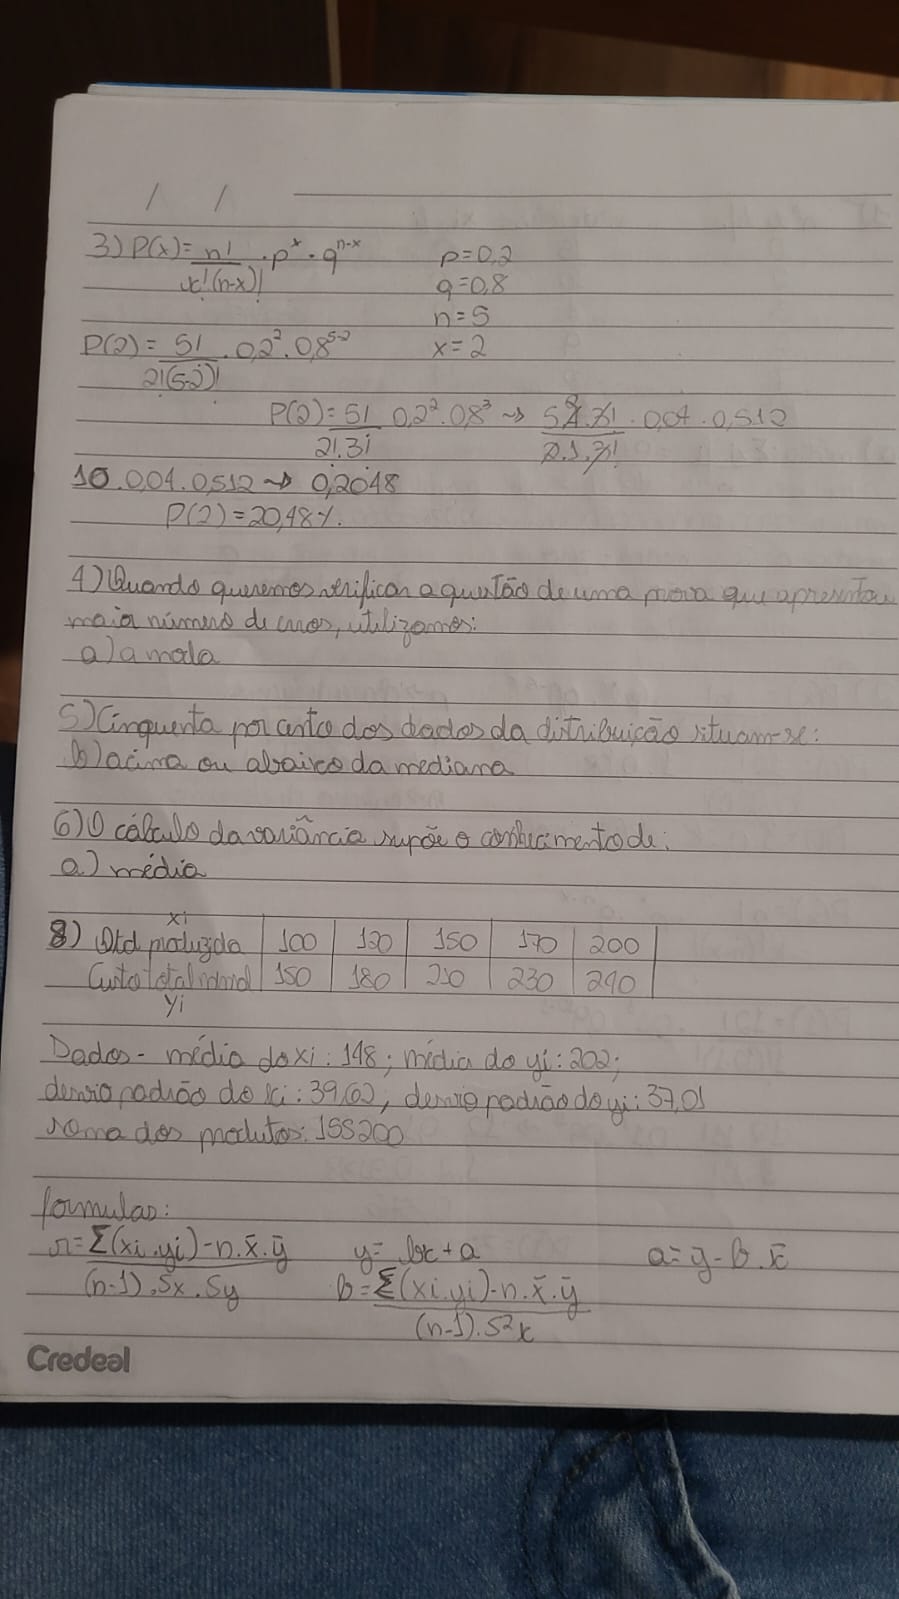 / /
3) P(x) = n! / x!(n-x)! . p^x . q^n-x p=0,2
q=0,8
n=5
P(2) = 5! / 2!(5-2)! . 0,2² . 0,8^5-2 x=2
P(2) = 5! / 2!.3! 0,2² . 0,8³ ~> 5.4.3! / 2.1.3! . 0,04 . 0,512
10 . 0,04 . 0,512 ~> 0,2048
P(2) = 20,48%.
4) Quando queremos verificar a questão de uma prova que apresentou
maior número de erros, utilizamos:
a) a moda
5) Cinquenta por cento dos dados da distribuição situam-se:
b) acima ou abaixo da mediana
6) O cálculo da variância supõe o conhecimento de:
a) média
xi
8) Qtd produzida | 100 | 120 | 150 | 170 | 200
Custo total | 150 | 180 | 210 | 230 | 240
yi
Dados - média do xi: 148; média do yi: 202;
desvio padrão do xi: 39,62, desvio padrão do yi: 37,01
soma dos produtos: 155200
formulas:
r = Σ(xi.yi) - n.x̄.ȳ / (n-1).Sx.Sy y = bx + a a = ȳ - b.x̄
b = Σ(xi.yi) - n.x̄.ȳ / (n-1).S²x
Credeal